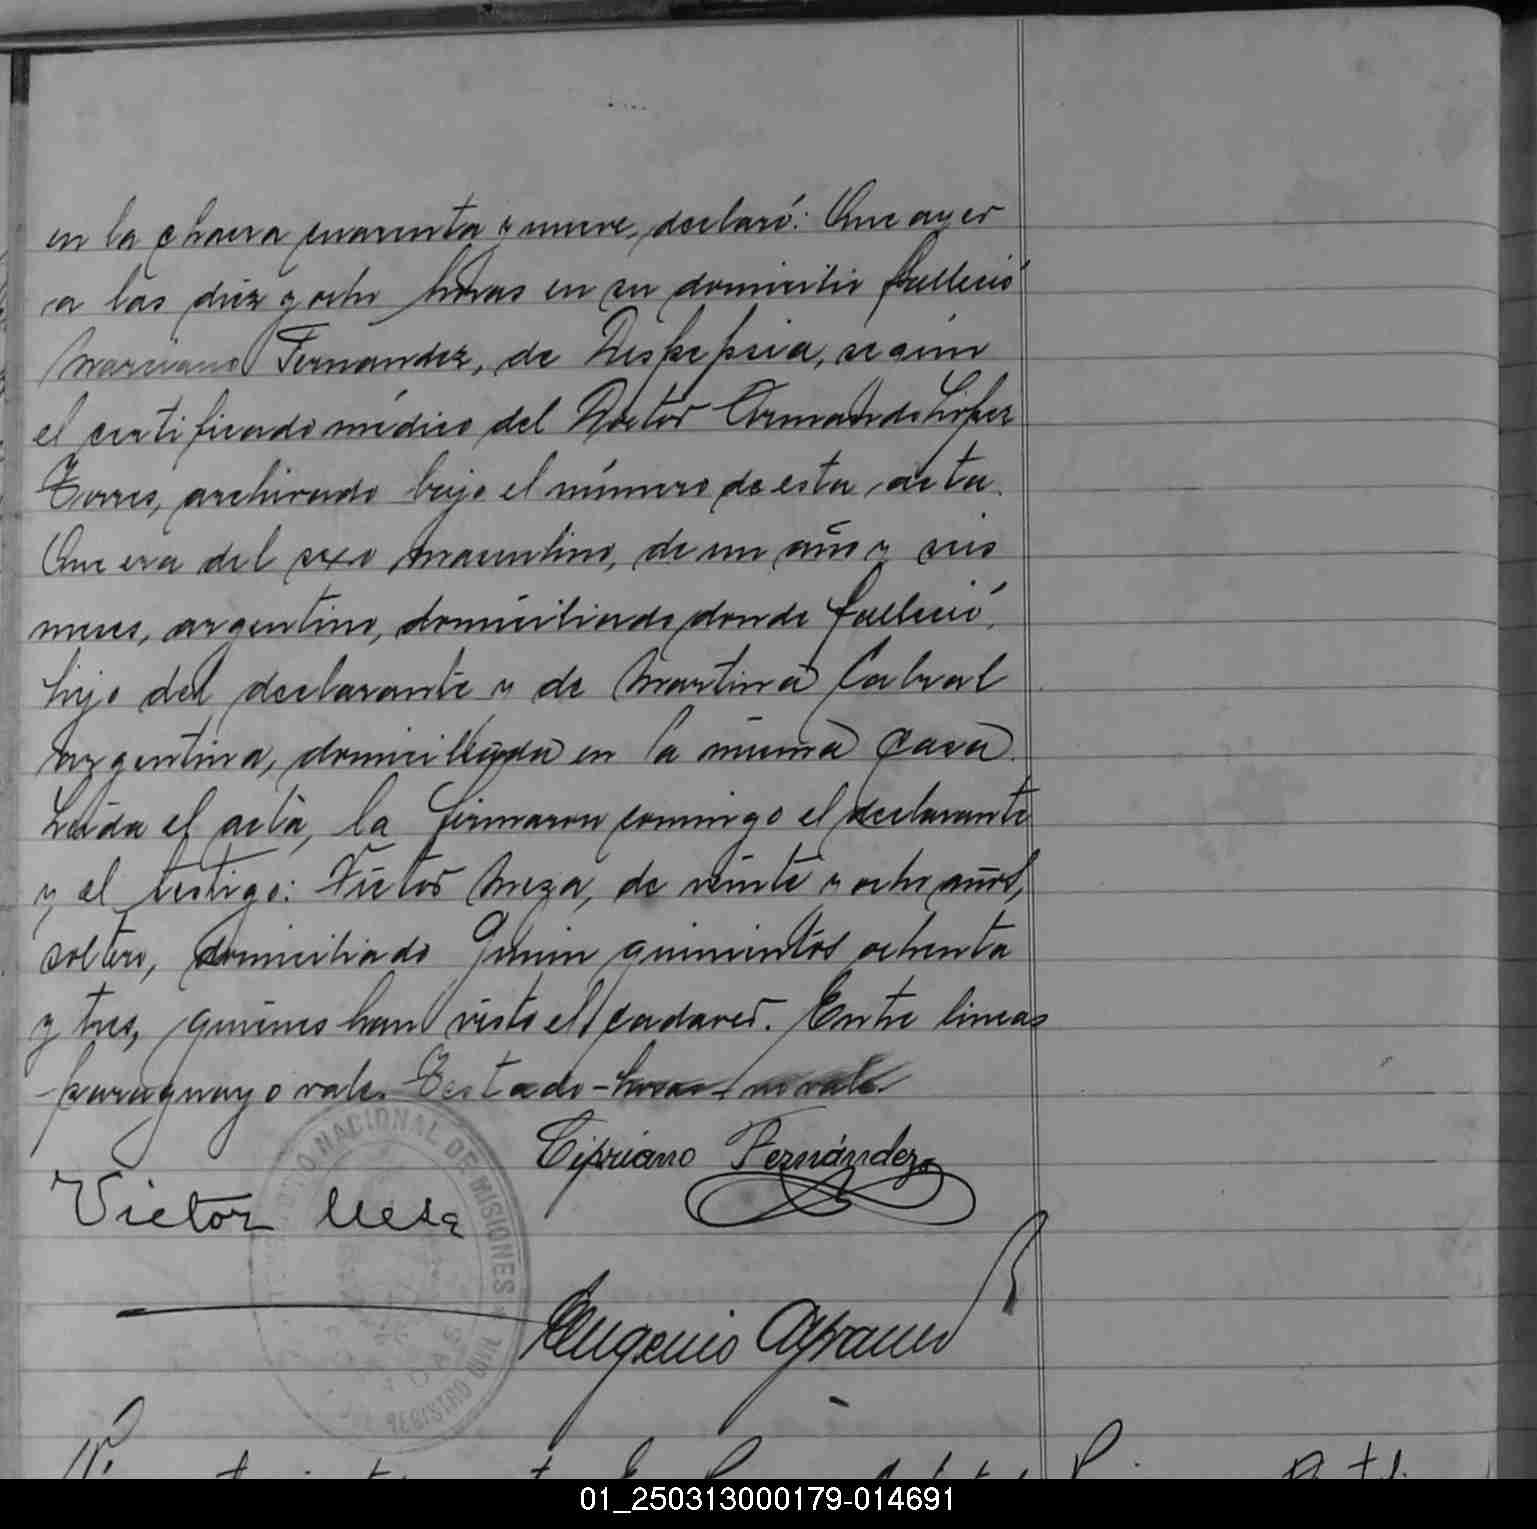 en la chacra cuarenta y nueve, declaró: Que ayer
a las diez y ocho horas en su domicilio falleció
Marciano Fernandez, de Dispepsia, según
el certificado médico del Doctor Armando López
Torres, archivado bajo el número de esta acta.
Que era del sexo masculino, de un año y seis
meses, argentino, domiciliado donde falleció,
hijo del declarante y de Martina Cabral
argentina, domiciliada en la misma casa.
Leída el acta, la firmaron conmigo el declarante
y el testigo: Víctor Meza, de veinte y ocho años,
soltero, domiciliado Junin quinientos ochenta
y tres, quiénes han visto el cadaver. Entre lineas
-paraguayo vale. Testado - horas - no vale
Cipriano Fernández
Victor Meza
Eugenio
NACIONAL DE MISIONES
REGISTRO CIVIL
01_250313000179-014691